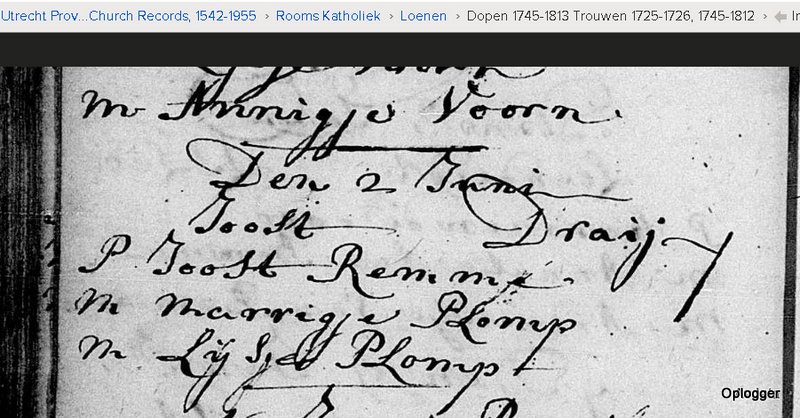 Utrecht Prov...Church Records, 1542-1955 › Rooms Katholiek › Loenen › Dopen 1745-1813 Trouwen 1725-1726, 1745-1812 ›
m Annigje Voorn
Den 2 Juni
Joost Draij
P Joost Remmé
m marrigje Plomp
m Lijsje Plomp